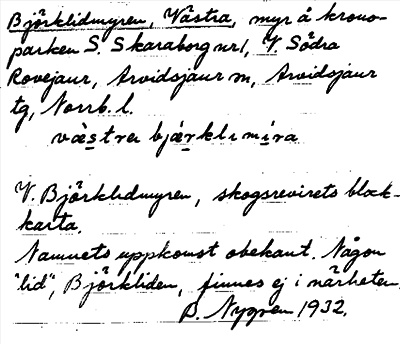 Björklidmyren, Västra, myr å krono-
parken S. Skaraborg nr 1, V. Södra
Rovejaur, Arvidsjaur sn, Arvidsjaur
tg, Norrb. l.
västra bjærklimira
V. Björklidmyren, skogsrevirets block-
karta.
Namnets uppkomst obekant. Någon
"lid", Björkliden, finnes ej i närheten.
B. Nygren 1932.